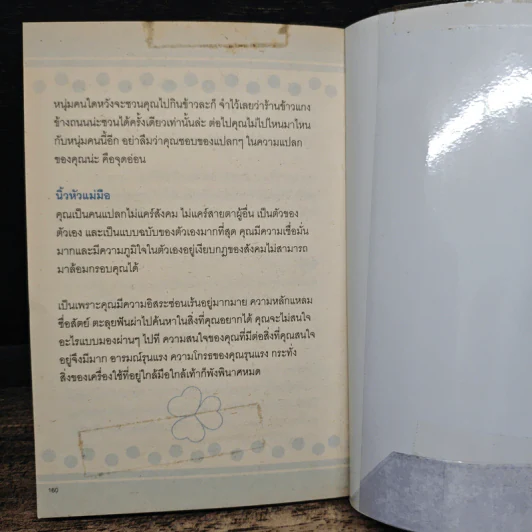 หนุ่มคนใดหวังจะชวนคุณไปกินข้าวละก็ จำไว้เลยว่าร้านข้าวแกง
ข้างถนนน่ะชวนได้ครั้งเดียวเท่านั้นล่ะ ต่อไปคุณไม่ไปไหนมาไหน
กับหนุ่มคนนี้อีก อย่าลืมว่าคุณชอบของแปลกๆ ในความแปลก
ของคุณน่ะ คือจุดอ่อน
นิ้วหัวแม่มือ
คุณเป็นคนแปลกไม่แคร์สังคม ไม่แคร์สายตาผู้อื่น เป็นตัวของ
ตัวเอง และเป็นแบบฉบับของตัวเองมากที่สุด คุณมีความเชื่อมั่น
มากและมีความภูมิใจในตัวเองอยู่เงียบกฎของสังคมไม่สามารถ
มาล้อมกรอบคุณได้
เป็นเพราะคุณมีความอิสระซ่อนเร้นอยู่มากมาย ความหลักแหลม
ซื่อสัตย์ ตะลุยฟันฝ่าไปค้นหาในสิ่งที่คุณอยากได้ คุณจะไม่สนใจ
อะไรแบบมองผ่านๆ ไปที ความสนใจของคุณที่มีต่อสิ่งที่คุณสนใจ
อยู่จึงมีมาก อารมณ์รุนแรง ความโกรธของคุณรุนแรง กระทั่ง
สิ่งของเครื่องใช้ที่อยู่ใกล้มือใกล้เท้าก็พังพินาศหมด
160